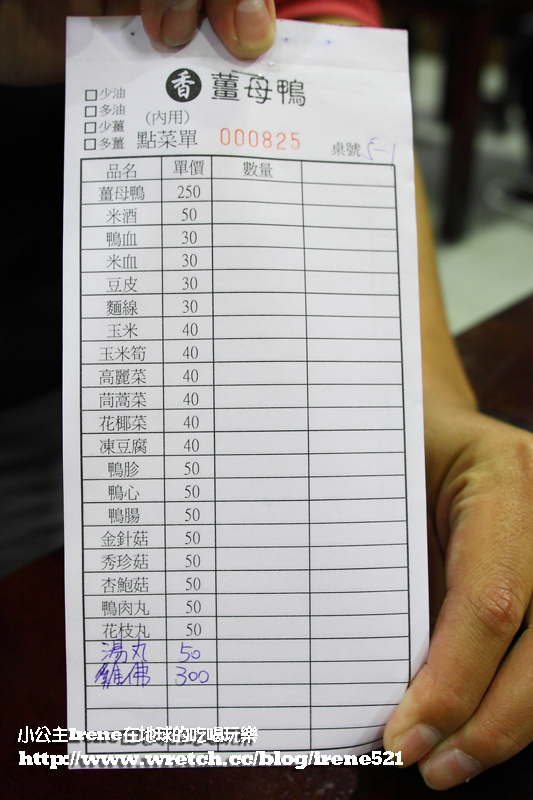 香 薑母鴨
□少油
□多油
□少薑
□多薑
(內用)
點菜單 000825 桌號 5-1
品名 單價 數量
薑母鴨 250
米酒 50
鴨血 30
米血 30
豆皮 30
麵線 30
玉米 40
玉米筍 40
高麗菜 40
茼蒿菜 40
花椰菜 40
凍豆腐 40
鴨胗 50
鴨心 50
鴨腸 50
金針菇 50
秀珍菇 50
杏鮑菇 50
鴨肉丸 50
花枝丸 50
湯丸 50
維佛 300
小公主Irene在地球的吃喝玩樂
http://www.wretch.cc/blog/irene521